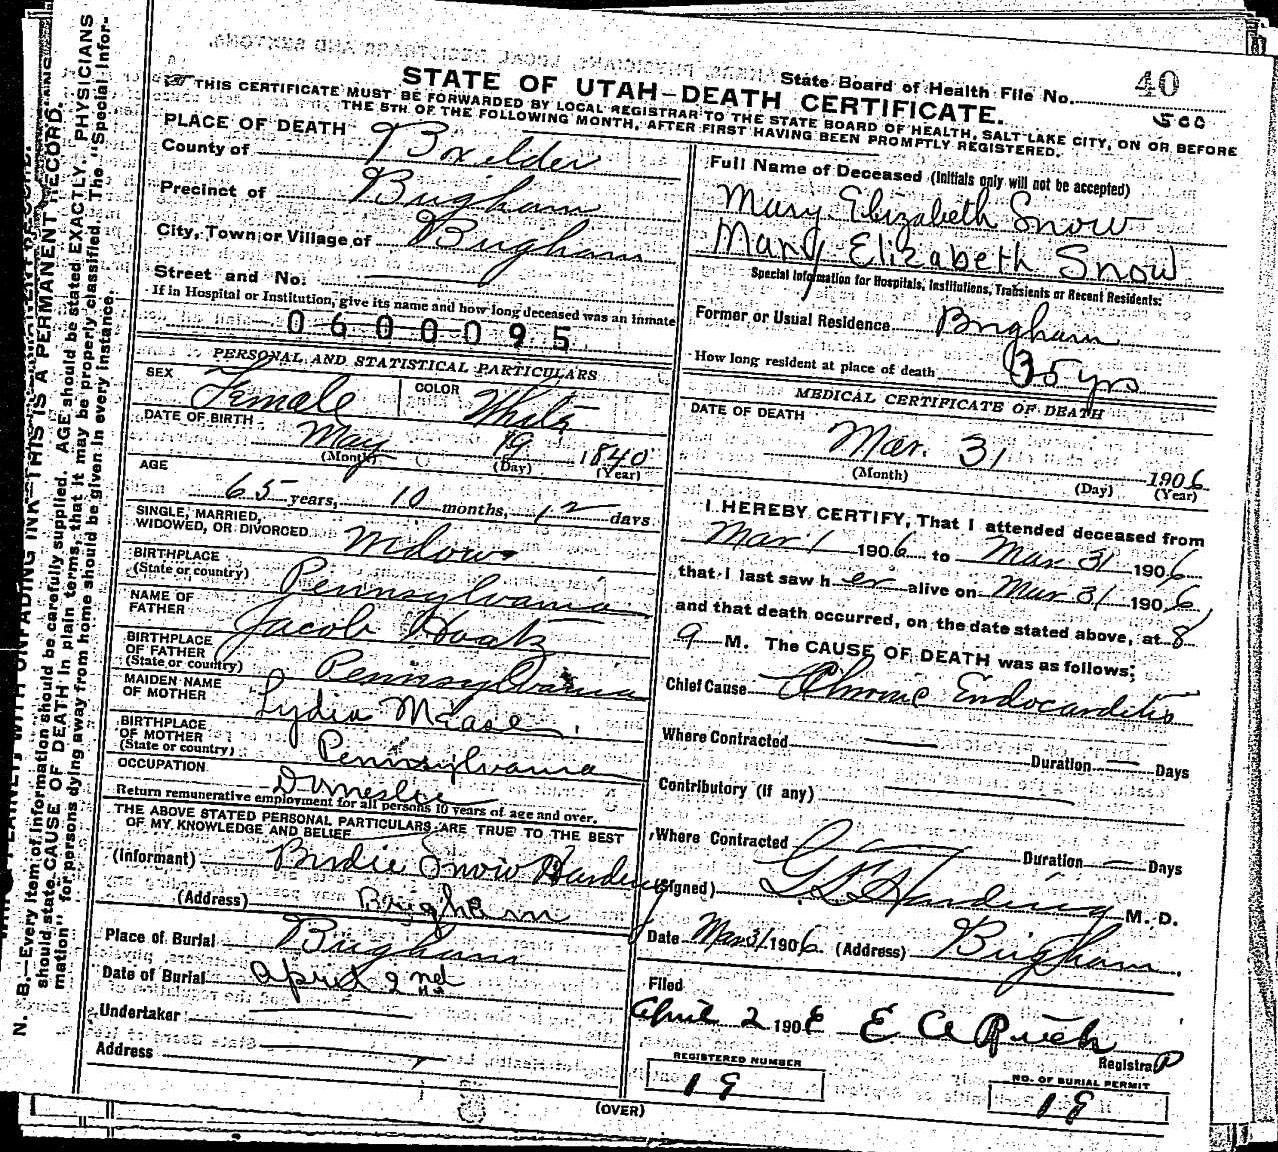 State Board of Health File No. 40
500
STATE OF UTAH—DEATH CERTIFICATE.
THIS CERTIFICATE MUST BE FORWARDED BY LOCAL REGISTRAR TO THE STATE BOARD OF HEALTH, SALT LAKE CITY, ON OR BEFORE
THE 5TH OF THE FOLLOWING MONTH, AFTER FIRST HAVING BEEN PROMPTLY REGISTERED.
PLACE OF DEATH
County of Boxelder
Precinct of Brigham
City, Town or Village of Brigham
Street and No. —
If in Hospital or Institution, give its name and how long deceased was an inmate
0600095
PERSONAL AND STATISTICAL PARTICULARS
SEX Female COLOR White
DATE OF BIRTH May 19 1840
(Month) (Day) (Year)
AGE
65 years, 10 months, 12 days
SINGLE, MARRIED,
WIDOWED, OR DIVORCED Widow
BIRTHPLACE
(State or country) Pennsylvania
NAME OF
FATHER Jacob Houtz
BIRTHPLACE
OF FATHER
(State or country) Pennsylvania
MAIDEN NAME
OF MOTHER Lydia Mease
BIRTHPLACE
OF MOTHER
(State or country) Pennsylvania
OCCUPATION Domestic
Return remunerative employment for all persons 10 years of age and over.
THE ABOVE STATED PERSONAL PARTICULARS ARE TRUE TO THE BEST
OF MY KNOWLEDGE AND BELIEF
(Informant) Birdie Snow Harding
(Address) Brigham
Place of Burial Brigham
Date of Burial April 2nd
Undertaker —
Address —
Full Name of Deceased (Initials only will not be accepted)
Mary Elizabeth Snow
Mary Elizabeth Snow
Special Information for Hospitals, Institutions, Transients or Recent Residents:
Former or Usual Residence Brigham
How long resident at place of death 35 yrs
MEDICAL CERTIFICATE OF DEATH
DATE OF DEATH
Mar. 31 1906
(Month) (Day) (Year)
I HEREBY CERTIFY, That I attended deceased from
Mar 1 1906 to Mar 31 1906
that I last saw her alive on Mar 31 1906,
and that death occurred, on the date stated above, at 8
a M. The CAUSE OF DEATH was as follows;
Chief Cause Chronic Endocarditis
Where Contracted —
Duration — Days
Contributory (if any) —
Where Contracted —
Duration — Days
(Signed) Harding M. D.
Date Mar 31 1906 (Address) Brigham.
Filed
April 2 1906 E A
Registrar
REGISTERED NUMBER
19
NO. OF BURIAL PERMIT
19
(OVER)
WITH UNFADING INK—THIS IS A PERMANENT RECORD.
N. B.—Every item of information should be carefully supplied. AGE should be stated EXACTLY. PHYSICIANS
should state CAUSE OF DEATH in plain terms, that it may be properly classified. The "Special Infor-
mation" for persons dying away from home should be given in every instance.